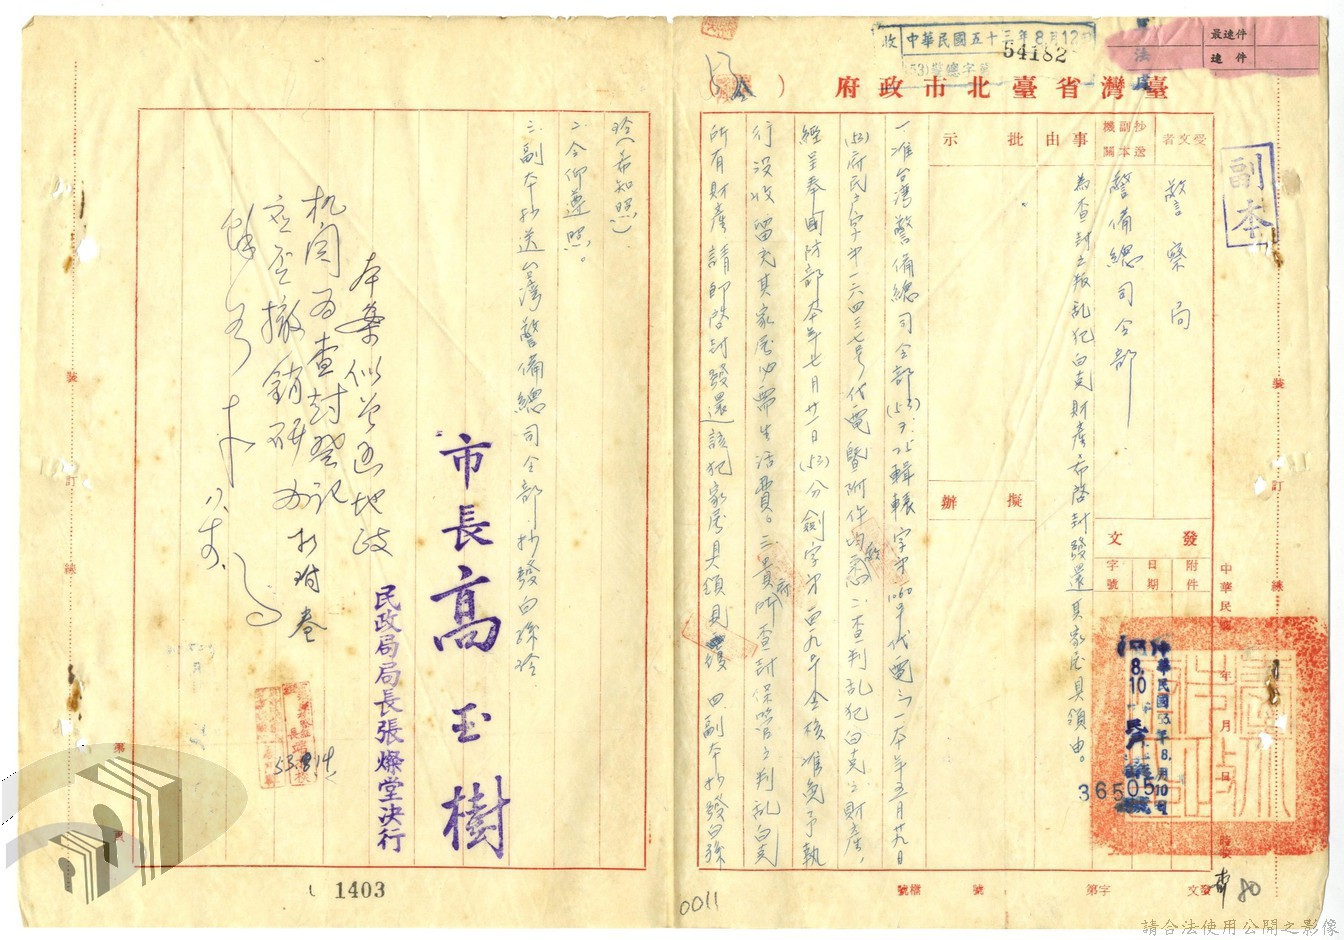 最速件
速件
收 中華民國五十三年8月12日
54182
(53)警總字第
軍法處
臺灣省臺北市政府（　）
副本
受文者
警察局
抄送副本機關
警備總司令部
事由
為查封之叛乱犯白克財產希啓封發還其家屬具領由。
批示
擬辦
發文
附件
日期
字號
中華民國　年　月　日
中華民國53年8月10日
36505號
一、准台灣警備總司令部(53)
府民戶字第一六四三七号代電暨附件均敬悉二、查判乱犯白克之財產，
經呈奉國防部本年七月廿一日(53)
字第
号令核准免予執
行沒收留充其家屬必需生活費。三、貴府所查封保管之判乱白克
所有財產請即啓封發還該犯家屬具領
四、副本抄發白孫
玲(希知照)
二、令仰遵照。
三、副本抄送台灣警備總司令部.抄發白孫玲
市長高玉樹
民政局局長張燦堂決行
本案似曾函地政
机関為查封登記
應否撤銷研
存
附卷
1403
0011
發文　字第　號
檔號
80
裝
訂
線
第　頁
裝
訂
線
請合法使用公開之影像